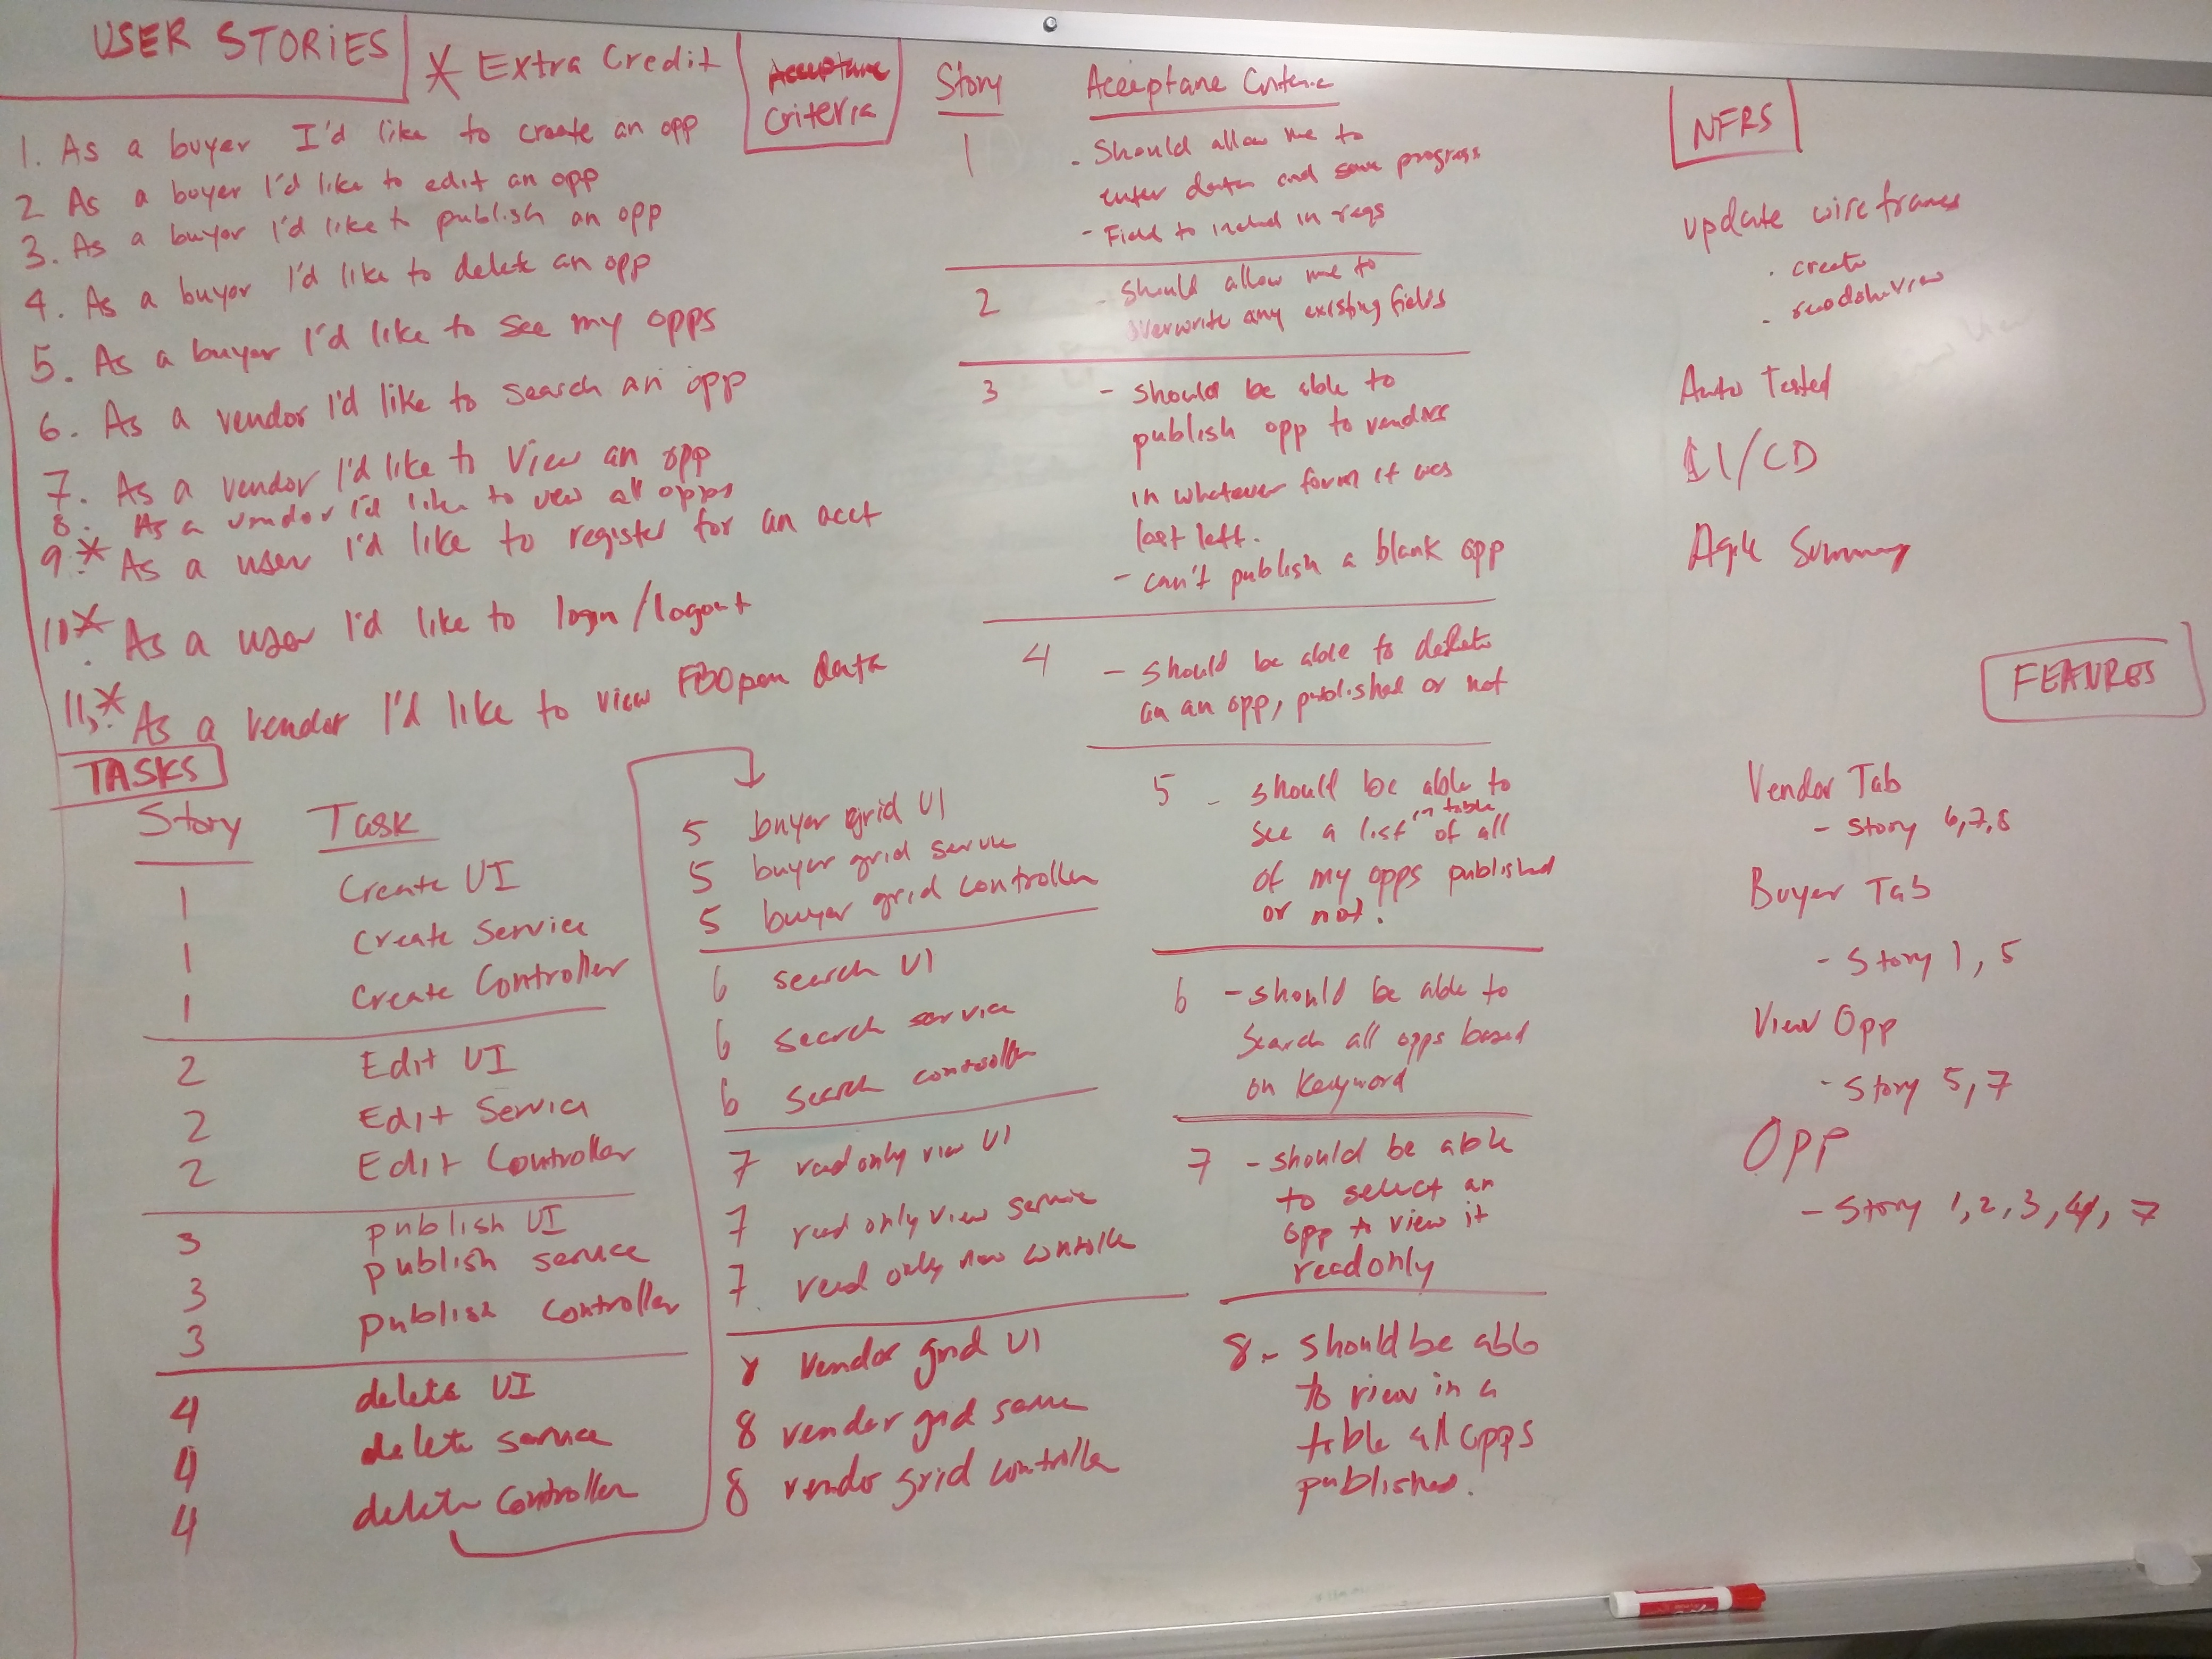 USER STORIES
* Extra Credit
1. As a buyer I'd like to create an opp
2 As a buyer I'd like to edit an opp
3. As a buyer I'd like to publish an opp
4. As a buyer I'd like to delete an opp
5. As a buyer I'd like to see my opps
6. As a vendor I'd like to search an opp
7. As a vendor I'd like to View an opp
8. As a vendor I'd like to view all opps
9.* As a user I'd like to register for an acct
10.* As a user I'd like to login/logout
11.* As a vendor I'd like to view FBOpen data
TASKS
Story Task
1 Create UI
1 Create Service
1 Create Controller
2 Edit UI
2 Edit Service
2 Edit Controller
3 publish UI
3 publish service
3 publish controller
4 delete UI
4 delete service
4 delete controller
5 buyer grid UI
5 buyer grid service
5 buyer grid controller
6 search UI
6 search service
6 search controller
7 read only view UI
7 read only view service
7 read only view controller
8 vendor grid UI
8 vendor grid service
8 vendor grid controller
Acceptane
Criteria
Story Acceptane Criteria
1 - Should allow me to
enter data and save progress
- Field to includ in reqs
2 - should allow me to
overwrite any existing fields
3 - should be able to
publish opp to vendors
in whatever form it was
last left.
- can't publish a blank opp
4 - should be able to delete
an an opp, published or not
5 - should be able to
see a list in table of all
of my opps published
or not.
6 - should be able to
search all opps based
on keyword
7 - should be able
to select an
opp to view it
readonly
8 - should be able
to view in a
table all opps
published.
NFRS
update wireframes
. create
. readonly view
Auto Tested
CI/CD
Agile Summary
FEATURES
Vendor Tab
- Story 6,7,8
Buyer Tab
- Story 1, 5
View Opp
- Story 5,7
Opp
- Story 1,2,3,4, 7